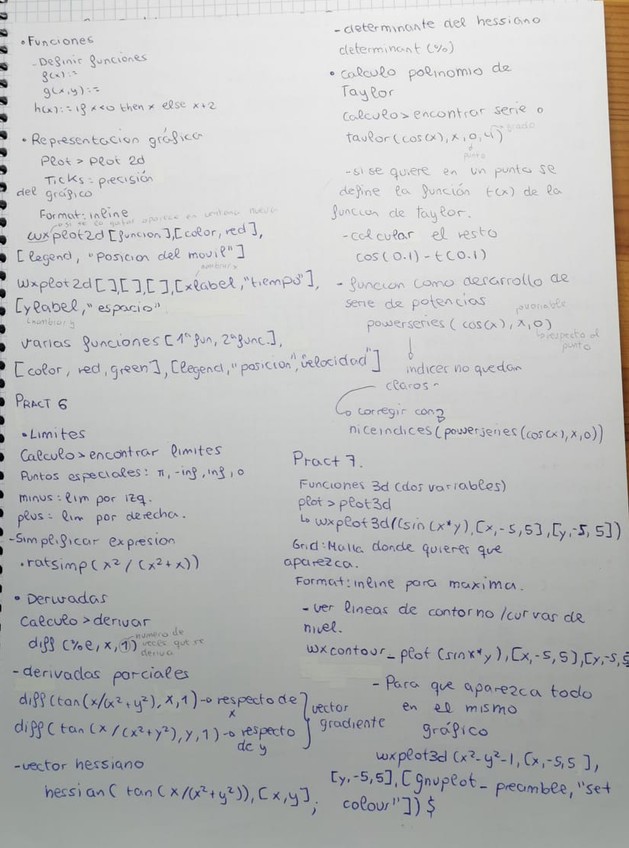 • Funciones
- Definir funciones
f(x):=
g(x,y):=
h(x):= if x<0 then x else x+2
• Representación gráfica
Plot > Plot 2d
Ticks: precisión
del gráfico
Format: inline
wxplot2d [funcion],[color, red],
[legend, "Posicion del movil"]
nombrar x
wxplot2d[],[],[],[xlabel,"tiempo"],
[ylabel, "espacio"
nombrar y
varias funciones [1ª fun, 2ª func.],
[color, red, green], [legend, "posicion", "velocidad"]
PRACT 6
• Limites
Calculo > encontrar limites
Puntos especiales: π, -inf, inf, 0
minus: lim por izq.
plus: lim por derecha.
- Simplificar expresion
• ratsimp (x²/(x²+x))
• Derivadas
Calculo > derivar
diff (%e, x, 1) numero de
veces que se
deriva
- derivadas parciales
diff(tan(x/(x²+y²), x,1) → respecto de
x
diff(tan(x/(x²+y²), y,1) → respecto
de y
vector
gradiente
- vector hessiano
hessian( tan(x/(x²+y²)), [x,y];
- determinante del hessiano
determinant (%)
• calculo polinomio de
Taylor
calculo > encontrar serie o
taulor(cos(x), x, 0, 4) grado
punto
- si se quiere en un punto se
define la función t(x) de la
funcion de taylor.
- calcular el resto
cos(0.1) - t(0.1)
- funcion como desarrollo de
serie de potencias
variable
powerseries( cos(x), x, 0)
respecto al
punto
indices no quedan
claros
corregir con
niceindices(powerseries(cos(x),x,0))
Pract 7.
Funciones 3d (dos variables)
plot > plot3d
wxplot3d((sin(x*y),[x,-5,5],[y,-5,5])
Grid: Malla donde quieres que
aparezca.
Format: inline para maxima.
- ver lineas de contorno / curvas de
nivel.
wxcontour_plot (sinx*y),[x,-5,5],[y,-5,5
- Para que aparezca todo
en el mismo
gráfico
wxplot3d (x²-y²-1, [x,-5,5],
[y,-5,5], [gnuplot_preamble, "set
colour"]) $